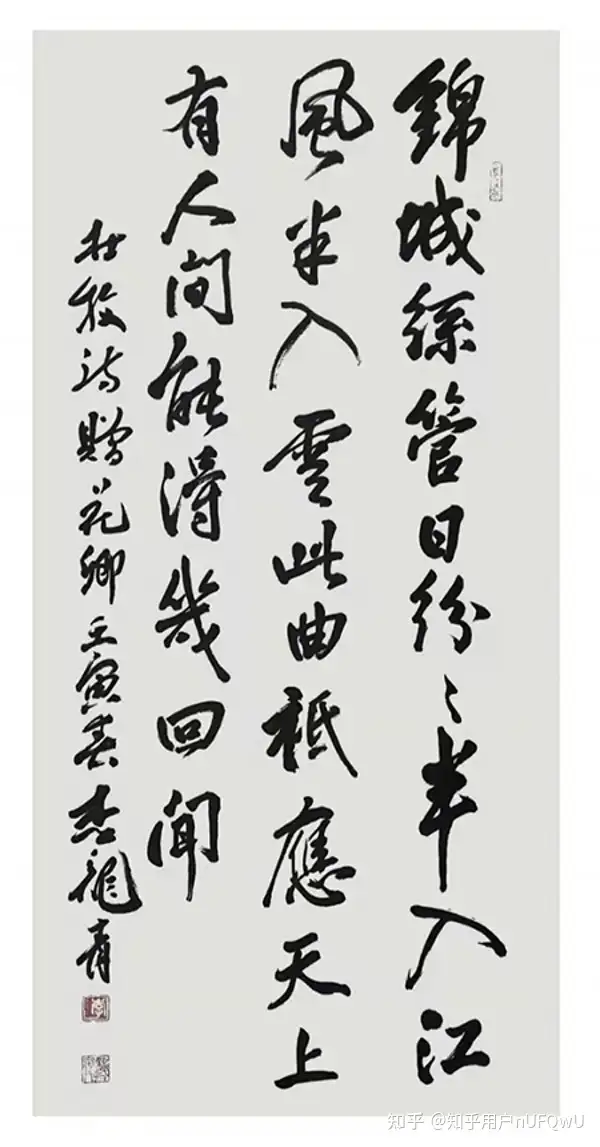 錦城絲管日紛〻半入江
風半入雲此曲祗應天上
有人間能得幾回聞
杜牧詩贈花卿壬寅春龍
知乎 @知乎用户nUFQwU